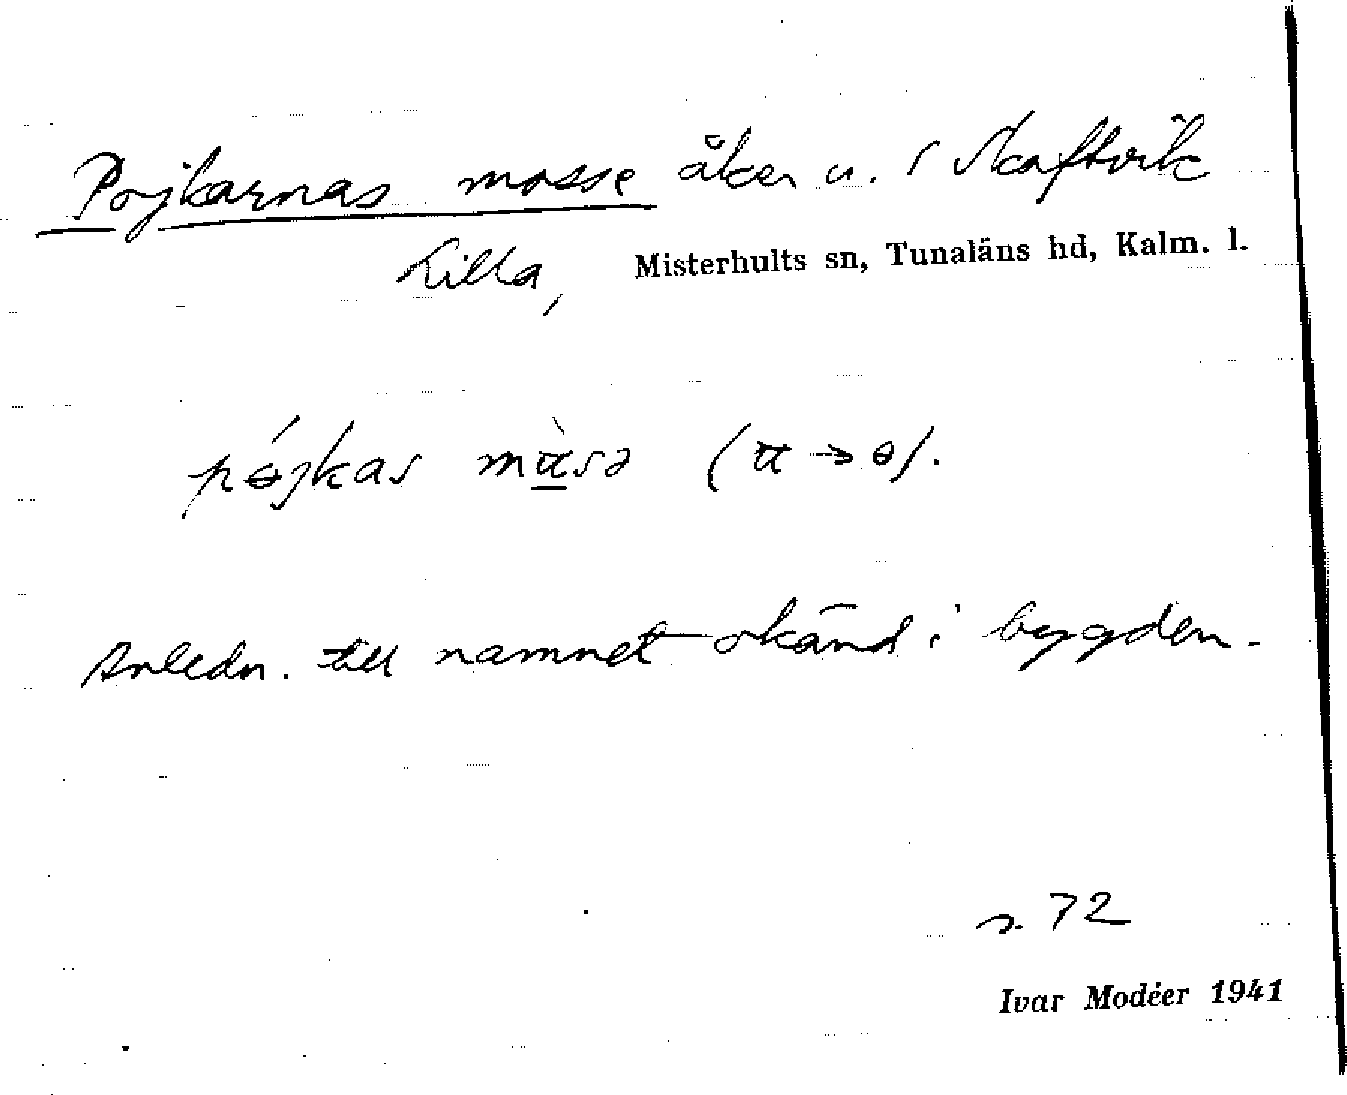 Pojkarnas mosse åker u. / Skaftvik
Lilla, Misterhults sn, Tunaläns hd, Kalm. l.
pɵ́jkas mɑ̀sə ( → ɵ).
Anledn. till namnet okänd i bygden.
s. 72
Ivar Modéer 1941